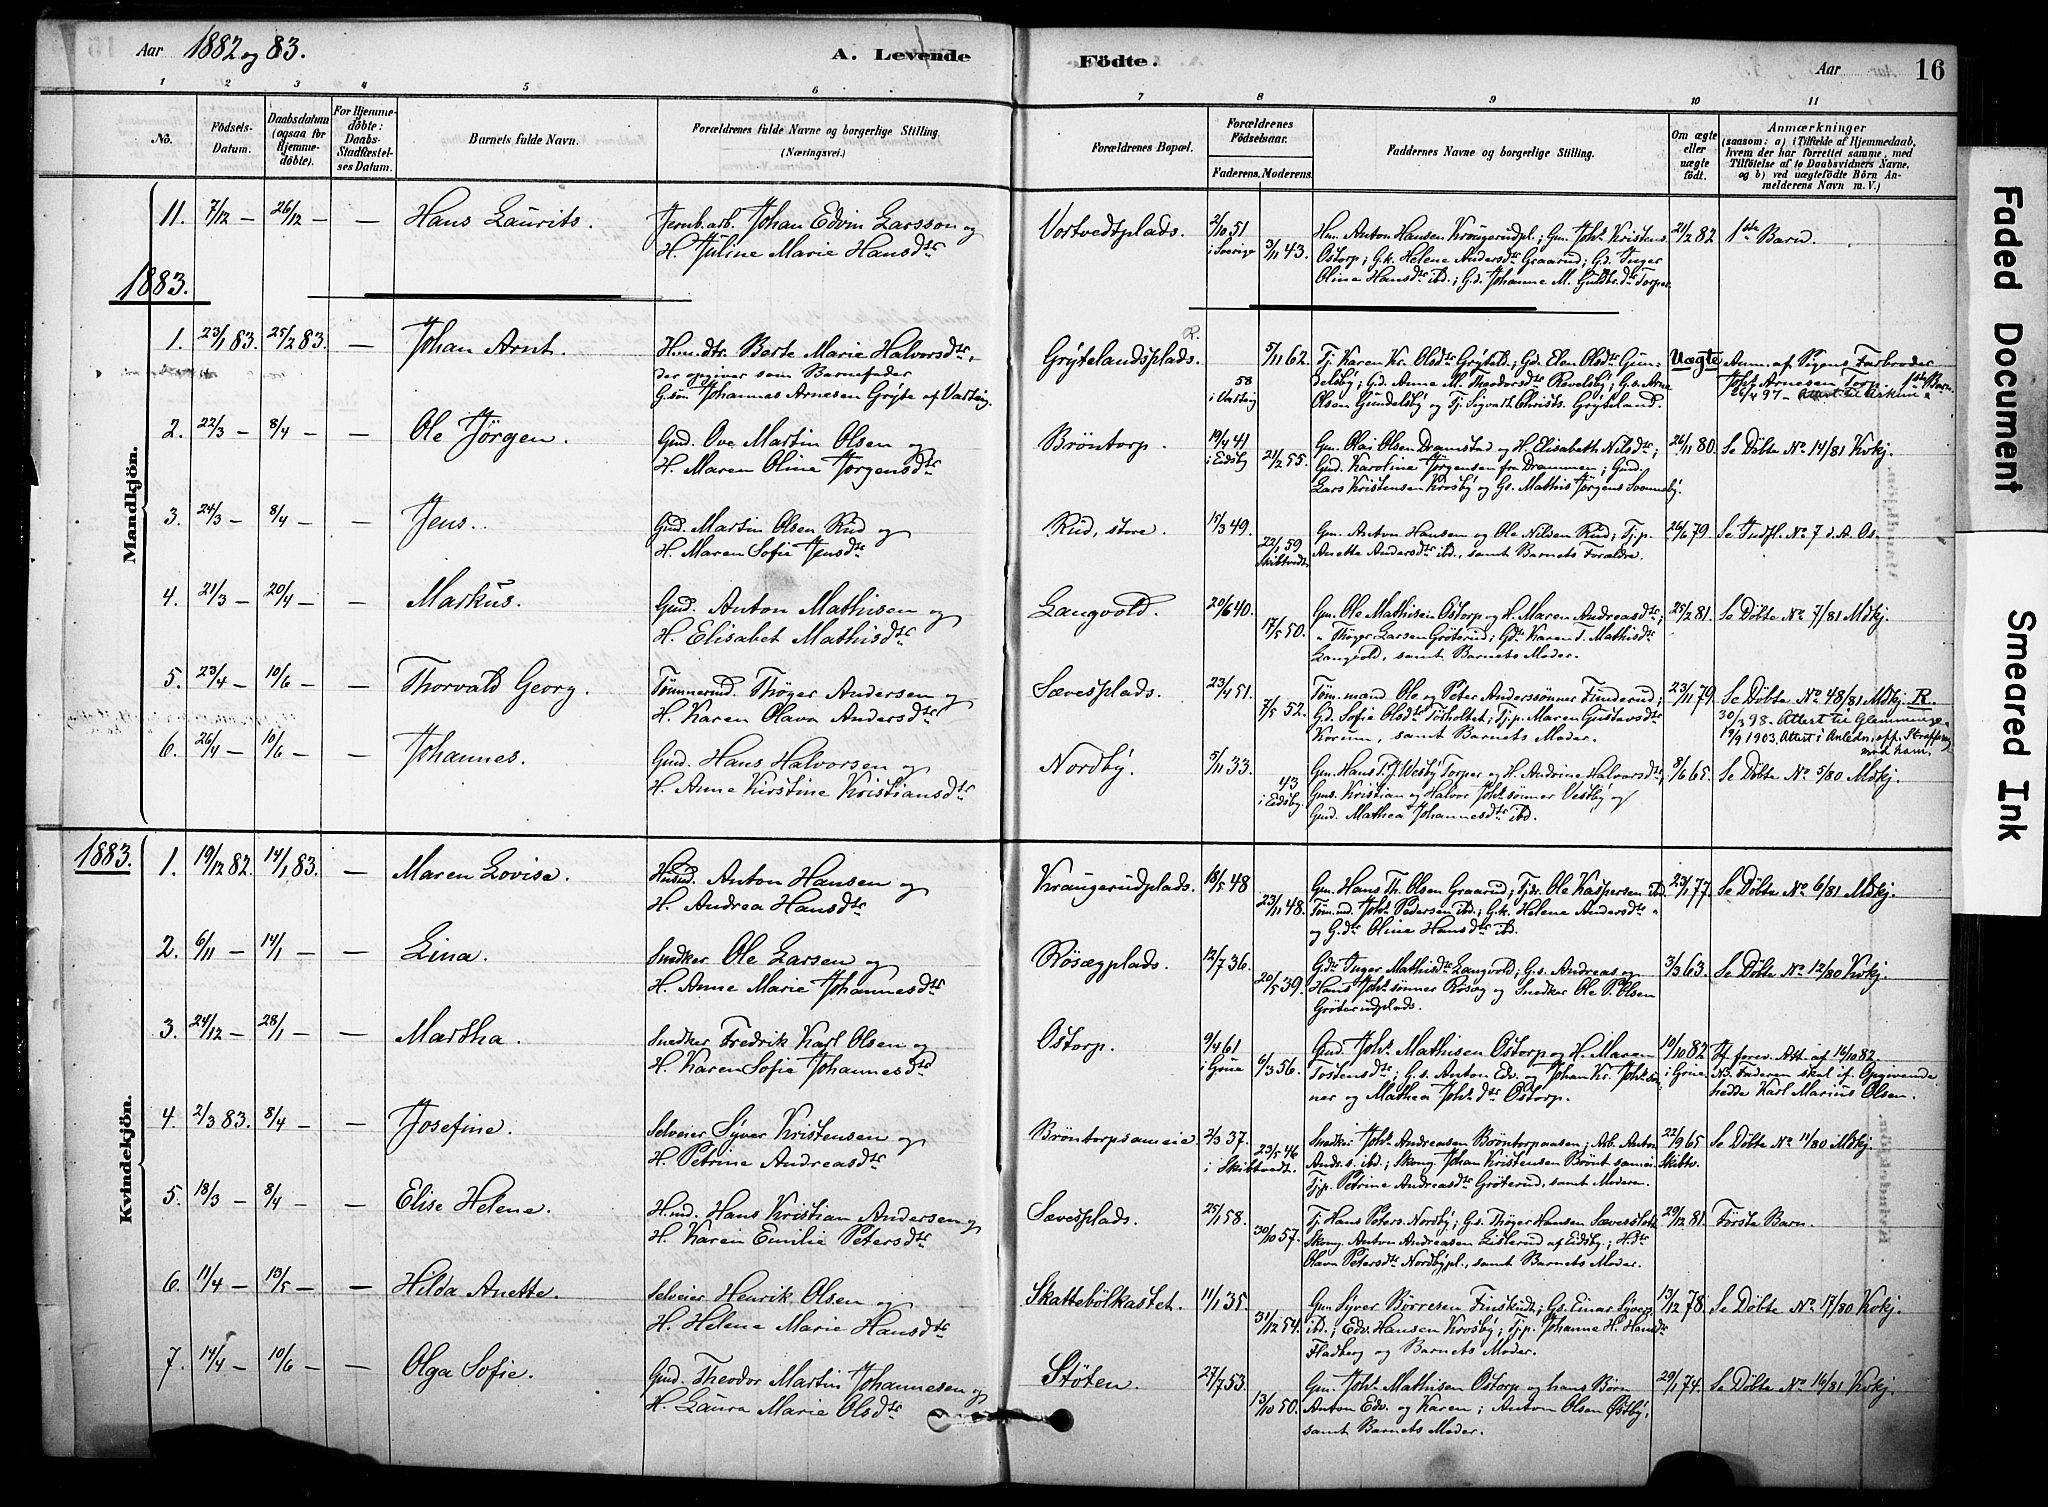 Aar 1882 og 83.
A. Levende Födte.
Aar 16
1 2 3 4 5 6 7 8 9 10 11
No.
Födsels-Datum.
Daabsdatum (ogsaa for Hjemmedöbte).
For Hjemmedöbte: Daabs-Stadfæstelses Datum.
Barnets fulde Navn.
Forældrenes fulde Navne og borgerlige Stilling. (Næringsvei.)
Forældrenes Bopæl.
Forældrenes Födselsaar.
Faderens. Moderens.
Faddernes Navne og borgerlige Stilling.
Om ægte eller uægte födt.
Anmærkninger
(saasom: a) i Tilfælde af Hjemmedaab, hvem der har forrettet samme, med Tilföielse af to Daabsvidners Navne, og b) ved uægtefödte Börn Anmelderens Navn m. V.)
11. 7/12 — 26/12 — — Hans Laurits. Jernb.arb. Johan Edvin Larsson og
H. Juline Marie Hansdtr
Vortvedtplads. 2/10 51 i Sverige 3/11 43.
Hm. Anton Hansen Kraugerudpl.; Gm. Johs Kristens.
Ostorp; G.k. Helene Andersdtr Graarud; G.d. Inger
Oline Hansdtr ibd.; G.d. Johanne M. Guldbr.dtr Torper
21/2 82 1ste Barn.
1883.
Mandkjön.
1. 23/1 83. 25/2 83. — Johan Arnt. Hm.dtr. Berte Marie Halvorsdtr,
der opgiver som Barnefader
G.søn Johannes Arnesen Grÿte af Vastvig.
Grÿtelandsplads. R. 58 i Vastvig 5/11 62.
Tj. Karen Kr. Olsdtr Grÿtel.; G.d. Elen Olsdtr Gun-
delsby; G.d. Anne M. Theodorsdtr Ravelsby; G.s. Arne
Olsen Gundelsby og Tj. Sigvart Christs. Grÿteland.
Uægte Anm. af Pigens Farbroder
Johs Arnesen Torp. 1ste Barn.
26/4 97 - Attest til Askim
2. 22/3 — 8/4 — — Ole Jörgen. Gmd. Ove Martin Olsen og
H. Maren Oline Jørgensdtr
Bröntorp. 19/4 41 i Edsby 21/2 55.
Gm. Olai Olsen Dramstad og H. Elisabeth Nilsdtr;
Gmd. Karoline Jørgensen fra Drammen; Gmd.
Lars Kristensen Krosbÿ og Gs. Mathis Jørgens Svennebÿ.
26/11 80. Se Döbte No 14/81 Kvkj.
3. 24/3 — 8/4 — — Jens. Gmd. Martin Olsen Rud og
H. Maren Sofie Jensdtr
Rud, store. 15/3 49. 22/1 59 Skibtvedt.
Gm. Anton Hansen og Ole Nilsen Rud; Tj.p.
Anette Andersdtr ibd., samt Barnets Forældre.
26/6 79. Se Indfl. No 7 d. A. Os.
4. 21/3 — 20/4 — — Markus. Gmd. Anton Mathisen og
H. Elisabet Mathisdtr
Langvold. 20/6 40. 17/5 50.
Gm. Ole Mathisen Ostorp og H. Maren Andreasdtr;
" Thöger Larsen Gröterud; Gdtr Karen T. Mathisdtr
Langvold, samt Barnets Moder.
25/2 81. Se Döbte No 7/81 Mdkj.
5. 23/4 — 10/6 — — Thorvald Georg. Tömmermd. Thöger Andersen og
H. Karen Olava Andersdtr
Sævesplads. 23/4 51. 7/5 52.
Töm.mand Ole og Peter Anderssönner Finderud;
G.d. Sofie Olsdtr Torholtet; Tj.p. Maren Gustavsdtr
Korum, samt Barnets Moder.
23/11 79. Se Döbte No 48/81 Mdkj. R.
30/3 98. Attest til Glemminge
19/9 1903. Attest i Anledn. aff. Straffesag mod ham.
6. 26/4 — 10/6 — — Johannes. Gmd. Hans Halvorsen og
H. Anne Kirstine Kristiansdtr
Nordbÿ. 5/11 33. 43 i Edsbÿ.
Gm. Hans T. J. Wesbÿ Torper og H. Andrine Halvorsdtr;
Gms. Kristian og Halvor Johs sønner Vestbÿ og
Gmd. Mathea Johannesdtr ibd.
8/6 65. Se Döbte No 5/80 Mdkj.
1883.
Kvindekjön.
1. 19/12 82. 14/1 83. — Maren Lovise. Husmd. Anton Hansen og
H. Andrea Hansdtr
Kraugerudplads. 18/5 48 23/11 48.
Gm. Hans Th. Olsen Graarud; Tjdr. Ole Kaspersen ibd.
Töm.md. Johs Pedersen ibd.; G.k. Helene Andersdtr "
og G.dtr Oline Hansdtr ibd.
23/1 77. Se Döbte No 6/81 Mdkj.
2. 6/11 — 14/1 — — Lina. Snedker Ole Larsen og
H. Anne Marie Johannesdtr
Rösægplads. 12/7 36. 20/5 39.
G.dtr Inger Mathisdtr Langvold; G.s. Andreas og
Hans Johs sønner Rösæg og Snedker Ole P. Olsen
Gröterudplads.
3/3 63. Se Döbte No 12/80 Kvkj.
3. 24/12 — 28/1 — — Martha. Snedker Fredrik Karl Olsen og
H. Karen Sofie Johannesdtr
Ostorp. 9/4 61 i Grue 6/3 56.
Gmd. Johs Mathisen Ostorp og H. Maren
Tostensdtr; G.s. Anton Edv. og Johan Kr. Johs søn-
ner og Mathea Johs dtr Ostorp.
10/10 82 i Grue If. forev. Att. af 16/10 82.
NB. Faderen skal if. Opgivende
hedde Karl Marius Olsen.
4. 2/3 83. 8/4 — — Josefine. Selveier Sÿver Kristensen og
H. Petrine Andreasdtr
Bröntorpsameie 2/3 37. 23/5 46 i Skibtvedt.
Snedker Johs Andreasen Bröntorpaasen; Arb. Anton
Andrs. s. ibd.; Skomg. Johan Kristensen Brönt.samei.
Tj.p. Petrine Andreasdtr Gröterud, samt Moderen.
22/9 65 Skibtv. Se Döbte No 11/80 Mdkj.
5. 18/3 — 8/4 — — Elise Helene. H.md. Hans Kristian Andersen og
H. Karen Emilie Petersdtr
Sævesplads. 25/1 58. 30/10 57.
Tj. Hans Peters. Nordbÿ; G.s. Thöger Hansen Sævesslett
Skomg. Anton Andreasen Lislerud af Edsbÿ; H.dtr
Olava Petersdtr Nordbÿpl., samt Barnets Moder.
29/12 81. Förste Barn.
6. 11/4 — 13/5 — — Hilda Anette. Selveier Henrik Olsen og
H. Helene Marie Hansdtr
Skattebölkastet. 11/1 35. 31/12 54.
Gm. Sÿver Börresen Finskudt; Gs. Einar Sÿvers.
ibd.; Edv. Hansen Krosbÿ; Tj.p. Johanne H. Hansdtr
Fladberg og Barnets Moder.
13/12 78. Se Döbte No 17/80 Kvkj.
7. 14/4 — 10/6 — — Olga Sofie. Gmd. Theodor Martin Johannesen og
H. Laura Marie Olsdtr
Stöten. 27/7 53. 13/10 50.
Gm. Johs Mathisen Ostorp og hans Börn
Anton Edv. og Karen; Anton Olsen Østbÿ,
samt Barnets Moder.
29/1 74. Se Döbte No 16/81 Kvkj.
Faded Document
Smeared Ink